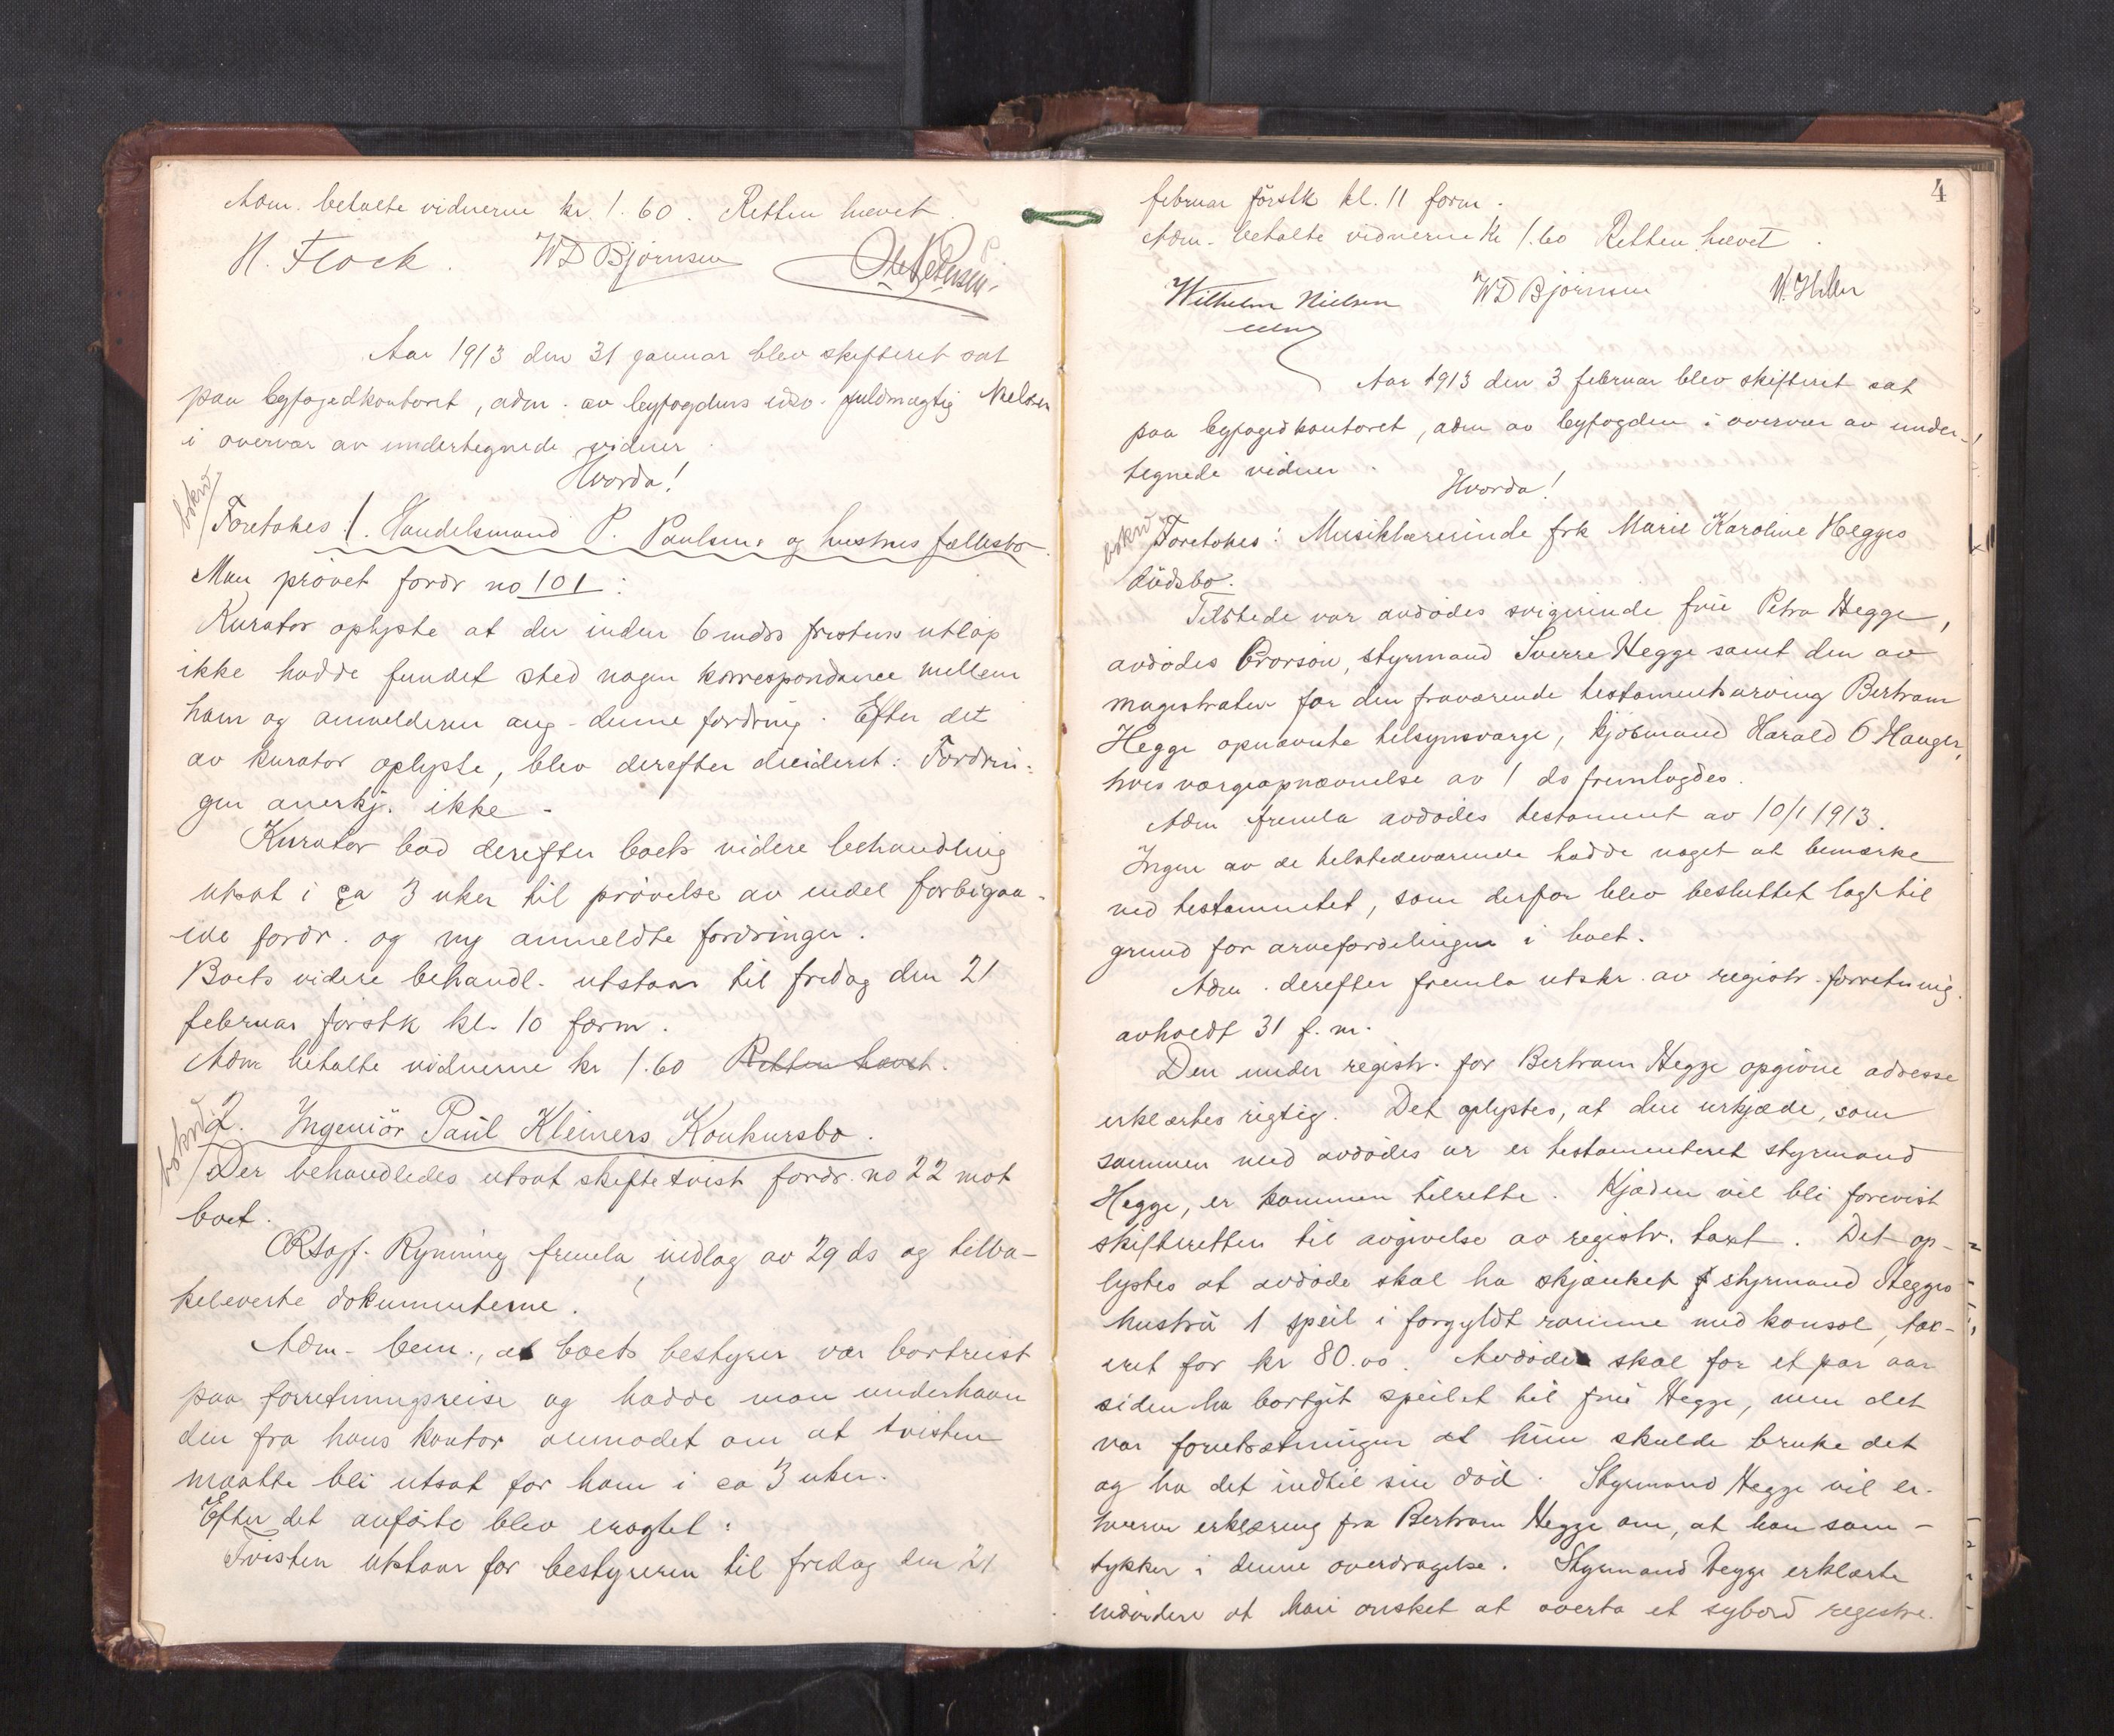 Adm. betalte vidnerne kr. 1.60. Retten hævet.
H. Flock. WD Bjørnsen Ole Pedersen
Aar 1913 den 31 januar blev skifteret sat
paa byfogedkontoret, adm. av byfogdens edsv. fuldmægtig Nielsen
i overvær av undertegnede vidner.
Hvorda!
bokn
Foretokes 1. Handelsmand P. Paulsens og hustrus fællesbo.
Man prøvet fordr no 101:
Kurator oplyste at der inden 6 mdrs fristens utløp
ikke hadde fundet sted nogen korrespondance mellem
ham og anmelderen ang. denne fordring. Efter det
av kurator oplyste, blev derefter decideret: Fordrin-
gen anerkj. ikke.
Kurator bad derefter boets videre behandling
utsat i ca 3 uker til prøvelse av endel forbigaa-
ede fordr. og ny anmeldte fordringer.
Boets videre behandl. utstaar til fredag den 21
februar førstk kl. 10 form.
Adm betalte vidnerne kr 1.60 Retten hævet.
bokn
2. Ingeniør Paul Kleiners Konkursbo.
Der behandledes utsat skiftetvist fordr. no 22 mot
boet.
ORsagf. Rynning fremla indlæg av 29 ds og tilba-
keleverte dokumenterne.
Adm. bem., at boets bestyrer var bortreist
paa forretningsreise og hadde man underhaan
den fra hans kontor anmodet om at tvisten
maatte bli utsat for ham i ca 3 uker.
Efter det anførte blev eragtet:
Tvisten utstaar for bestyreren til fredag den 21
4
februar førstk kl. 11 form.
Adm. betalte vidnerne Kr 1.60 Retten hævet.
Wilhelm Nielsen WD Bjørnsen
Aar 1913 den 3 februar blev skifteret sat
paa byfogedkontoret, adm av byfogden i overvær av under-
tegnede vidner.
Hvorda!
bokn
Foretokes: Musiklærerinde frk Marie Karoline Hegges
dødsbo.
Tilstede var avdødes svigerinde frue Petra Hegge,
avdødes brorsøn, styrmand Sverre Hegge samt den av
magistraten for den fraværende testamentsarving Bertram
Hegge opnævnte tilsynsværge, kjøbmand Harald O Hauger,
hvis værgeopnævnelse av 1 ds fremlagdes.
Adm fremla avdødes testament av 10/1 1913.
Ingen av de tilstedeværende hadde noget at bemærke
ved testamentet, som derfor blev besluttet lagt til
grund for arvefordelingen i boet.
Adm. derefter fremla utskr. av registr. forretning
avholdt 31 f. m.
Den under registr. for Bertram Hegge opgivne adresse
erklærtes rigtig. Det oplystes, at den urkjæde, som
sammen med avdødes ur er testamenteret styrmand
Hegge, er kommen tilrette. Kjæden vil bli forevist
skifteretten til avgivelse av registr. taxt. Det op-
lystes at avdøde skal ha skjænket styrmand Hegges
hustru 1 speil i forgyldt ramme med konsol, tax-
eret for kr 80.00. Avdøde skal for et par aar
siden ha bortgit speilet til frue Hegge, men det
var forutsætningen at hun skulde bruke det
og ha det indtil sin død. Styrmand Hegge vil er-
hverve erklæring fra Bertram Hegge om, at han sam-
tykker i denne overdragelse. Styrmand Hegge erklærte
endvidere at han ønsket at overta et sybord registre-